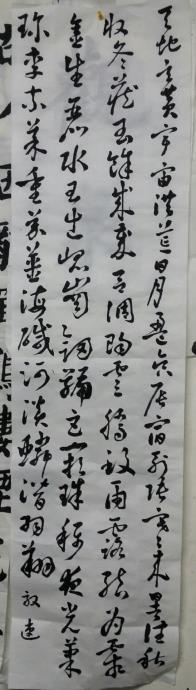 天地玄黃宇宙洪荒日月盈昃辰宿列張寒來暑往秋
收冬藏閏餘成歲律呂調陽雲騰致雨露結為霜
金生麗水玉出崑岡劍號巨闕珠稱夜光菓
珍李柰菜重芥薑海鹹河淡鱗潛羽翔